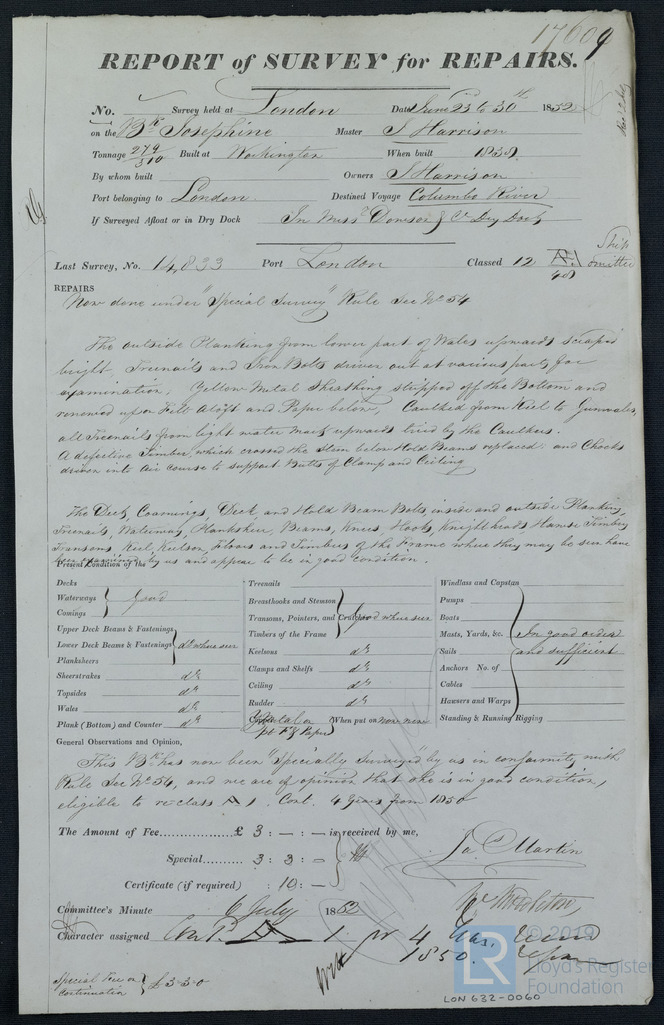 17609
REPORT of SURVEY for REPAIRS.
No. Survey held at London Date June 23 to 30th 1852
on the Bk Josephine Master J Harrison
Tonnage 279/310 Built at Workington When built 1838.
By whom built Owners J Harrison
Port belonging to London Destined Voyage Columbo River
If Surveyed Afloat or in Dry Dock In Messrs Dowson & Co Dry Dock
Last Survey, No. 14,833 Port London Classed 12 A1 48
Ship omitted
REPAIRS
Now done under "Special Survey" Rule Sec No 54
The outside Planking from lower part of Wales upwards scraped
bright, Treenails and Iron Bolts driven out at various parts for
examination, Yellow Metal Sheathing stripped off the Bottom and
renewed upon Felt Aloft and Paper below, Caulked from Keel to Gunwales,
all Treenails from light water mark upwards tried by the Caulkers.
A defective Timber, which crossed the Stem below Hold Beams replaced and Chocks
driven into Air course to support Butts of Clamp and Ceiling
The Deck, Coamings, Deck, and Hold Beam Bolts, inside and outside Planking,
Treenails, Waterway, Planksheer, Beams, Knees, Hooks, Knightheads Hawse Timbers
Transoms, Keel, Keelson, Floors and Timbers of the Frame where they may be seen have
been examined by us and appear to be in good condition.
Present Condition of the
Decks
Waterways } Good
Comings
Upper Deck Beams & Fastenings
Lower Deck Beams & Fastenings } do where seen
Planksheers
Sheerstrakes do
Topsides do
Wales do
Plank (Bottom) and Counter do
Treenails
Breasthooks and Stemson
Transoms, Pointers, and Crutches } Good where seen
Timbers of the Frame
Keelsons do
Clamps and Shelfs do
Ceiling do
Rudder do
Y Metal on pt F & Paper } When put on now new
Windlass and Capstan
Pumps
Boats
Masts, Yards, &c. } In good order
Sails and sufficient
Anchors No. of
Cables
Hawsers and Warps
Standing & Running Rigging
General Observations and Opinion,
This Bk has now been "Specially Surveyed" by us in conformity with
Rule Sec No 54, and we are of opinion that she is in good condition,
eligible to re-class A 1. Cont. 4 Years from 1850
The Amount of Fee............... £ 3 : — : — is received by me,
Special.......... 3 : 3 : =
Certificate (if required) : 10 : — Ja C Martin
Committee's Minute 6 July 1852
Character assigned Cont. A 1. for 4 Years from
1850.
Special Fee on
Continuation } £3-3-0
© 2019
LR
Lloyd's Register
Foundation
LON 632-0060